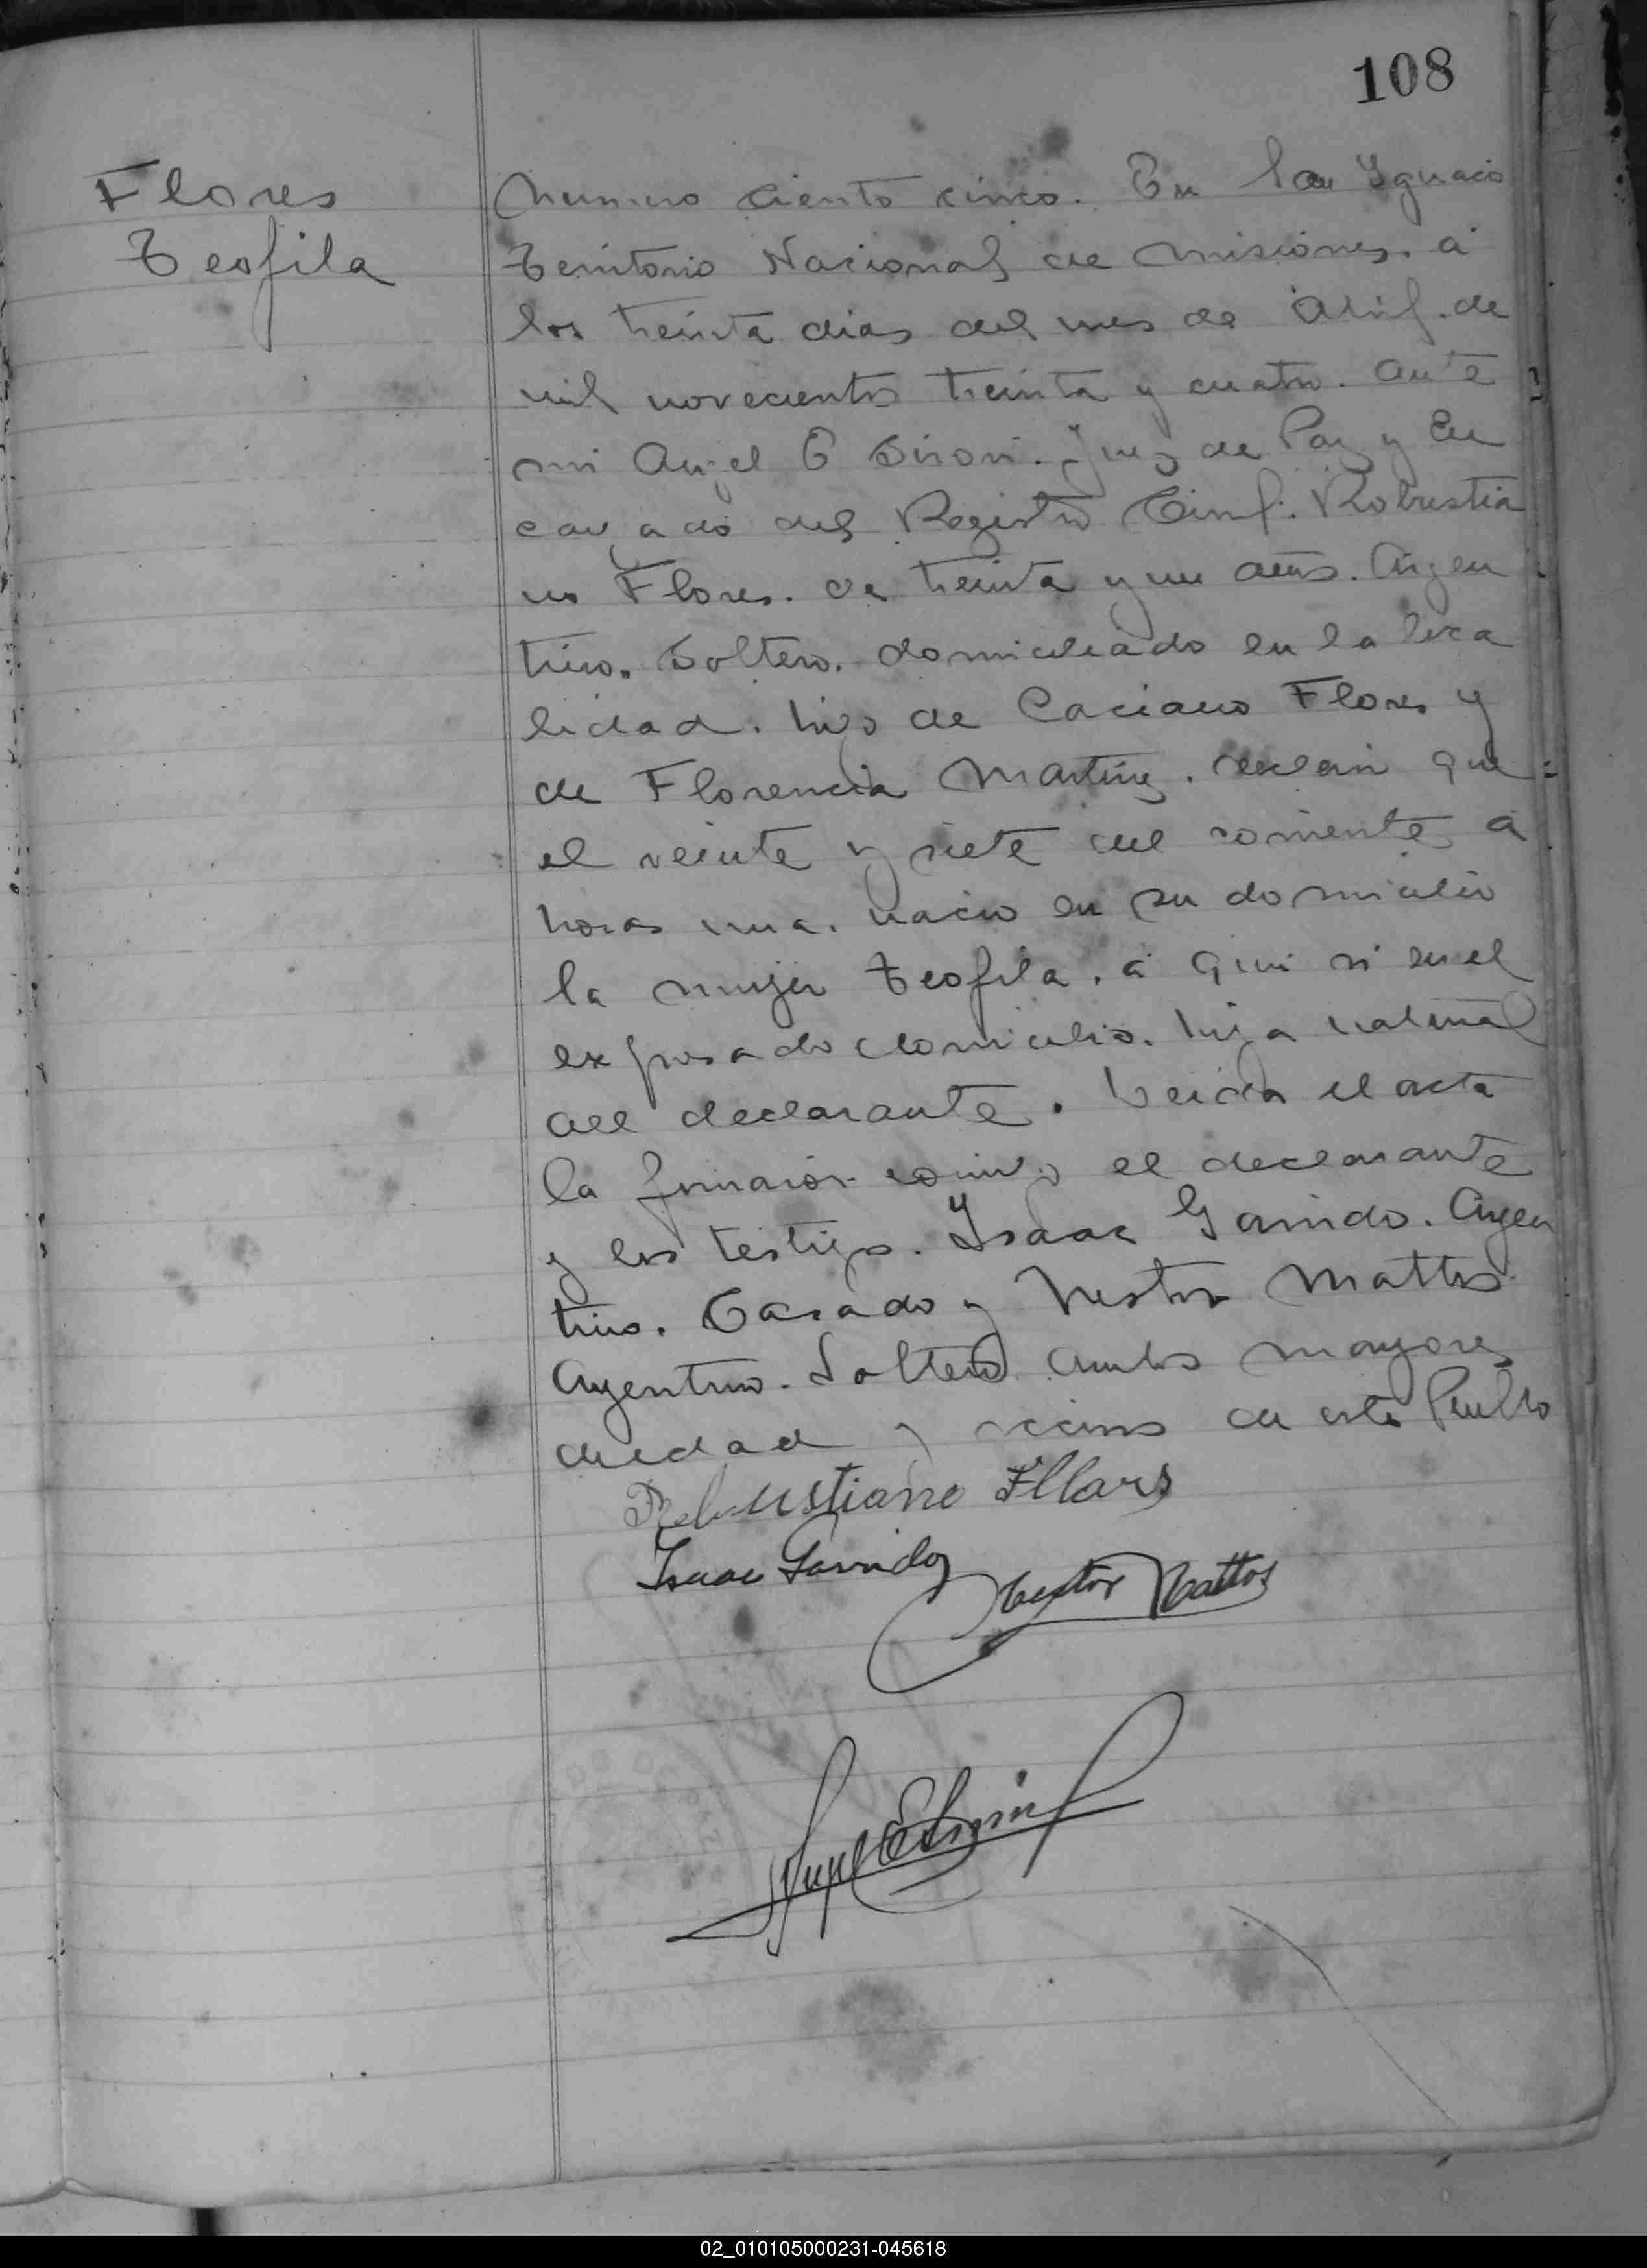 108
Flores
Teofila
Numero ciento cinco. En San Ygnacio
Territorio Nacional de Misiones. a
los treinta dias del mes de Abril. de
mil novecientos treinta y cuatro. ante
mi Angel E Sirori. Juez de Paz y En
cargado del Registro Civil. Robustia
no Flores. de treinta y un años. Argen
tino. Soltero. domiciliado en la loca
lidad. hijo de Caciano Flores y
de Florencia Martinez. declaro que
el veinte y siete del corriente a
horas una. nacio en su domicilio
la mujer Teofila. a quien vi en el
expresado domicilio. hija natural
del declarante. Leida el acta
la firmaron conmigo el declarante
y los testigos. Isaac Garrido. Argen
tino. Casado y Nestor Mattos
Argentino. Soltero ambos mayores
de edad y vecinos de este Pueblo
Robustiano Fllors
Isaac Garrido
Nestor Mattos
Angel E Sirori
02_010105000231-045618